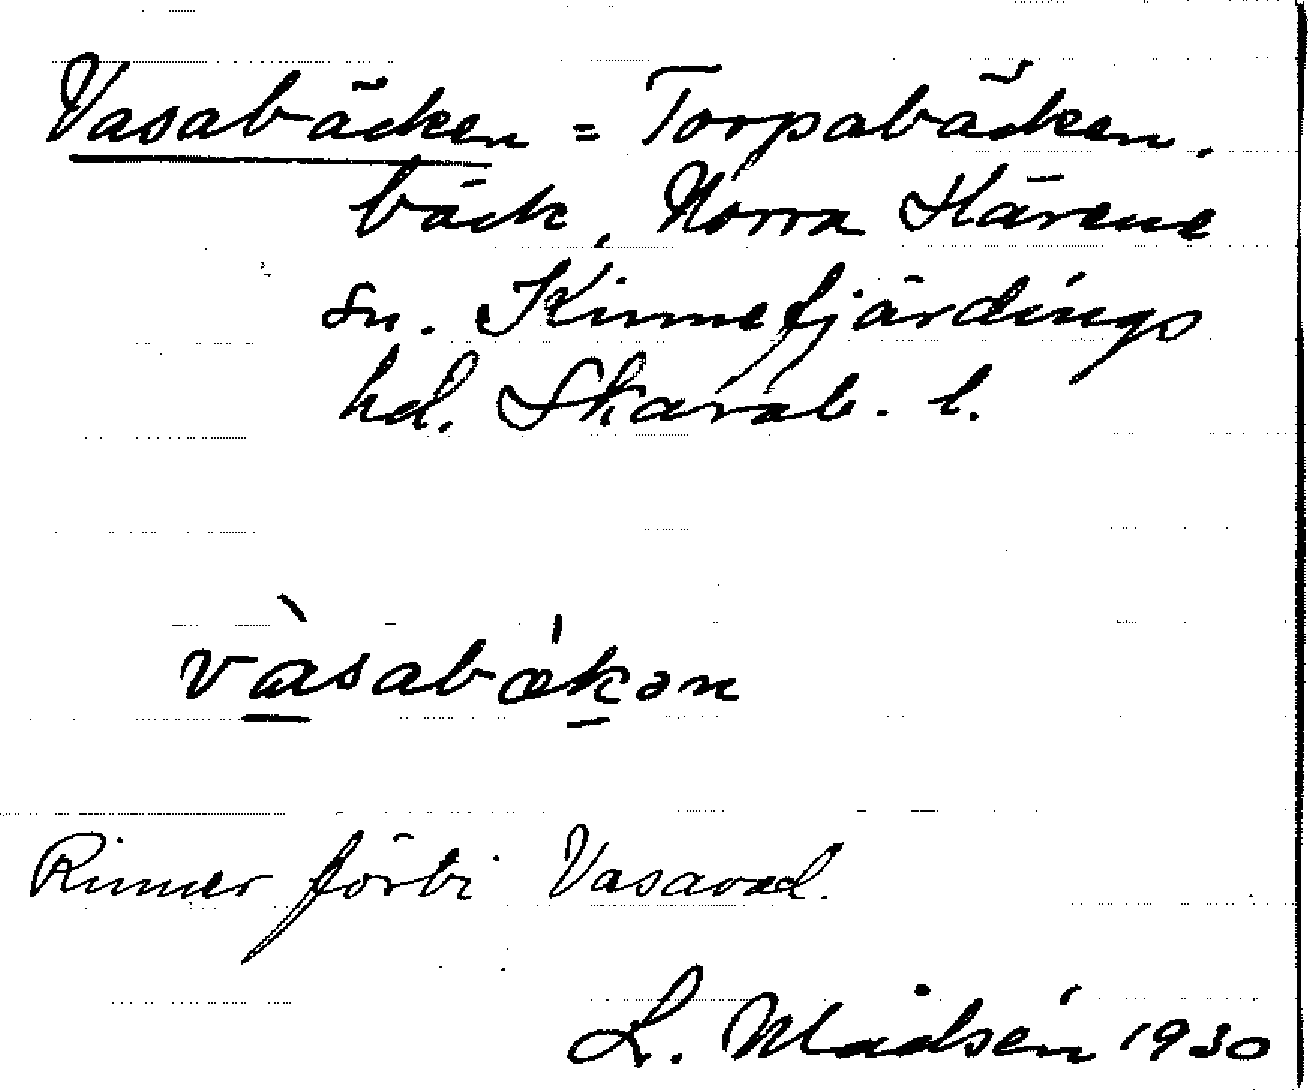 Vasabäcken = Torpabäcken,
bäck, Norra Härene
sn. Kinnefjärdings
hd. Skarab. l.
vàsabǽkən
Rinner förbi Vasavad.
L. Mådsén 1930